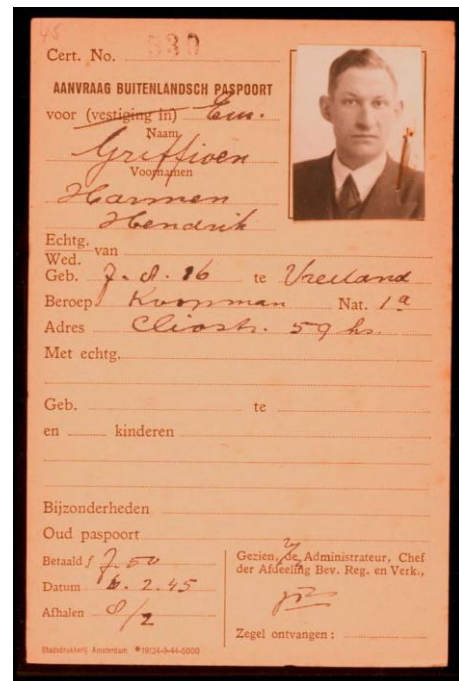 45
Cert. No. 330
AANVRAAG BUITENLANDSCH PASPOORT
voor (vestiging in) Eur.
Naam
Griffioen
Voornamen
Harmen
Hendrik
Echtg.
Wed. van
Geb. 7.8.16 te Vreeland
Beroep Koopman Nat. 1a
Adres Cliostr. 59 hs.
Met echtg.
Geb. te
en kinderen
Bijzonderheden
Oud paspoort
Betaald ƒ 7.50
Datum 6.2.45
Afhalen 8/2
Gezien, de Administrateur, Chef
der Afdeeling Bev. Reg. en Verk.,
Zegel ontvangen :
Stadsdrukkerij Amsterdam *19134-9-44-5000